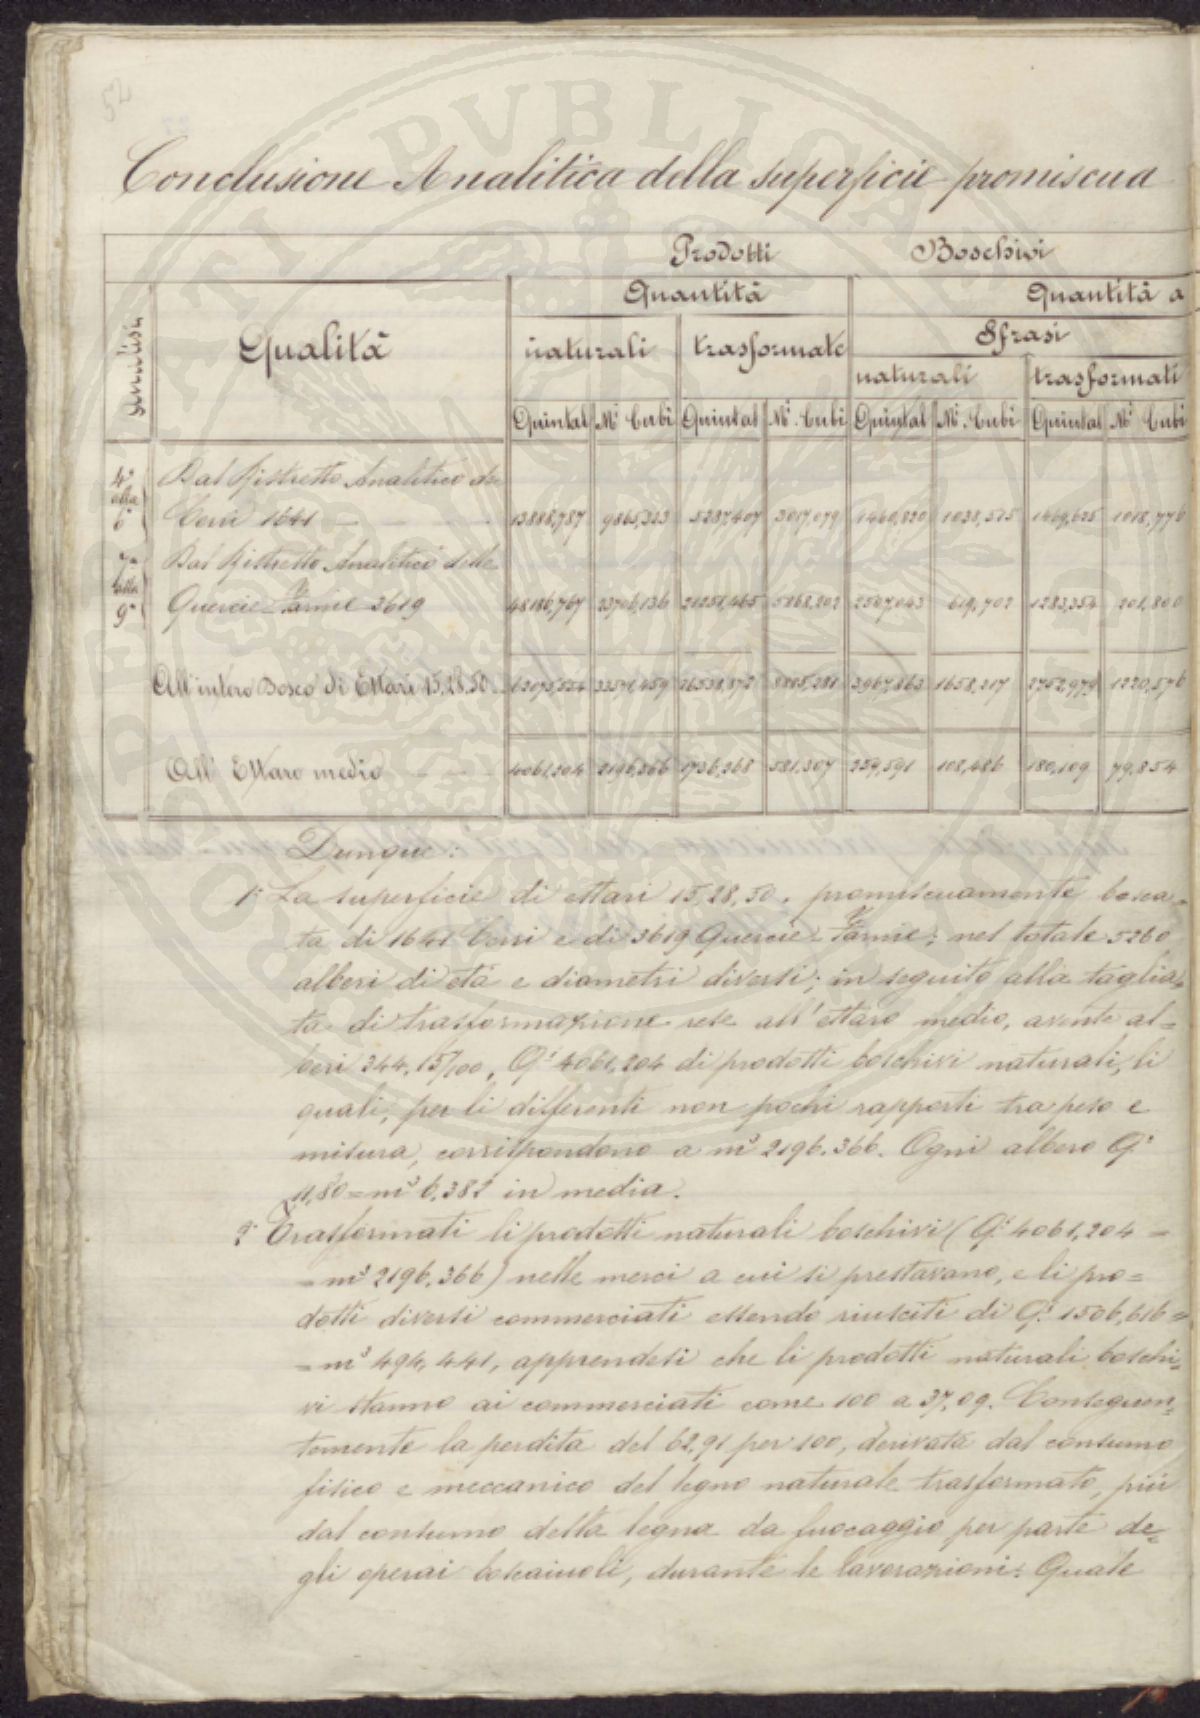 52
Conclusione Analitica della superficie promiscua
Prodotti Boschivi
Quantità Quantità a
Analisi Qualità naturali trasformate Sfrasi
naturali trasformati
Quintal Mⁱ Cubi Quintal Mⁱ Cubi Quintal Mⁱ Cubi Quintal Mⁱ Cubi
4ª alla 6ª Dal Ristretto Analitico dei
Cerri 1641 13888,787 9865,323 5287,407 3017,079 1460,820 1038,515 1469,625 1018,776
7ª alla 9ª Dal Ristretto Analitico delle
Quercie-Farnie 3619 48186,767 23706,136 21251,465 5868,202 2507,043 619,702 1283,354 201,800
All'intero Bosco di Ettari 15,28,50 62075,554 33571,459 26538,872 8885,281 3967,863 1658,217 2752,979 1220,576
All' Ettaro medio 4061,204 2196,366 1736,268 581,307 259,591 108,486 180,109 79,854
Dunque:
1º La superficie di ettari 15,28,50, promiscuamente bosca=
ta di 1641 Cerri e di 3619 Quercie-Farnie; nel totale 5260
alberi di età e diametri diversi; in seguito alla taglia=
ta di trasformazione rese all'ettaro medio, avente al=
beri 344,15/100, Qⁱ 4061,204 di prodotti boschivi naturali, li
quali, per li differenti non pochi rapporti tra peso e
misura, corrispondono a m³ 2196.366. Ogni albero Qⁱ
11,80=m³ 6,382 in media.
2º Trasformati li prodotti naturali boschivi (Qⁱ 4061,204 =
= m³ 2196,366) nelle merci a cui si prestavano, e li pro=
dotti diversi commerciati essendo riusciti di Qⁱ 1506,616=
= m³ 494,441, apprendesi che li prodotti naturali boschi=
vi stanno ai commerciati come 100 a 37,09. Conseguen=
temente la perdita del 62,91 per 100, derivata dal consumo
fisico e meccanico del legno naturale trasformato, più
dal consumo della legna da fuocaggio per parte de=
gli operai boscaiuoli, durante le lavorazioni: Quale